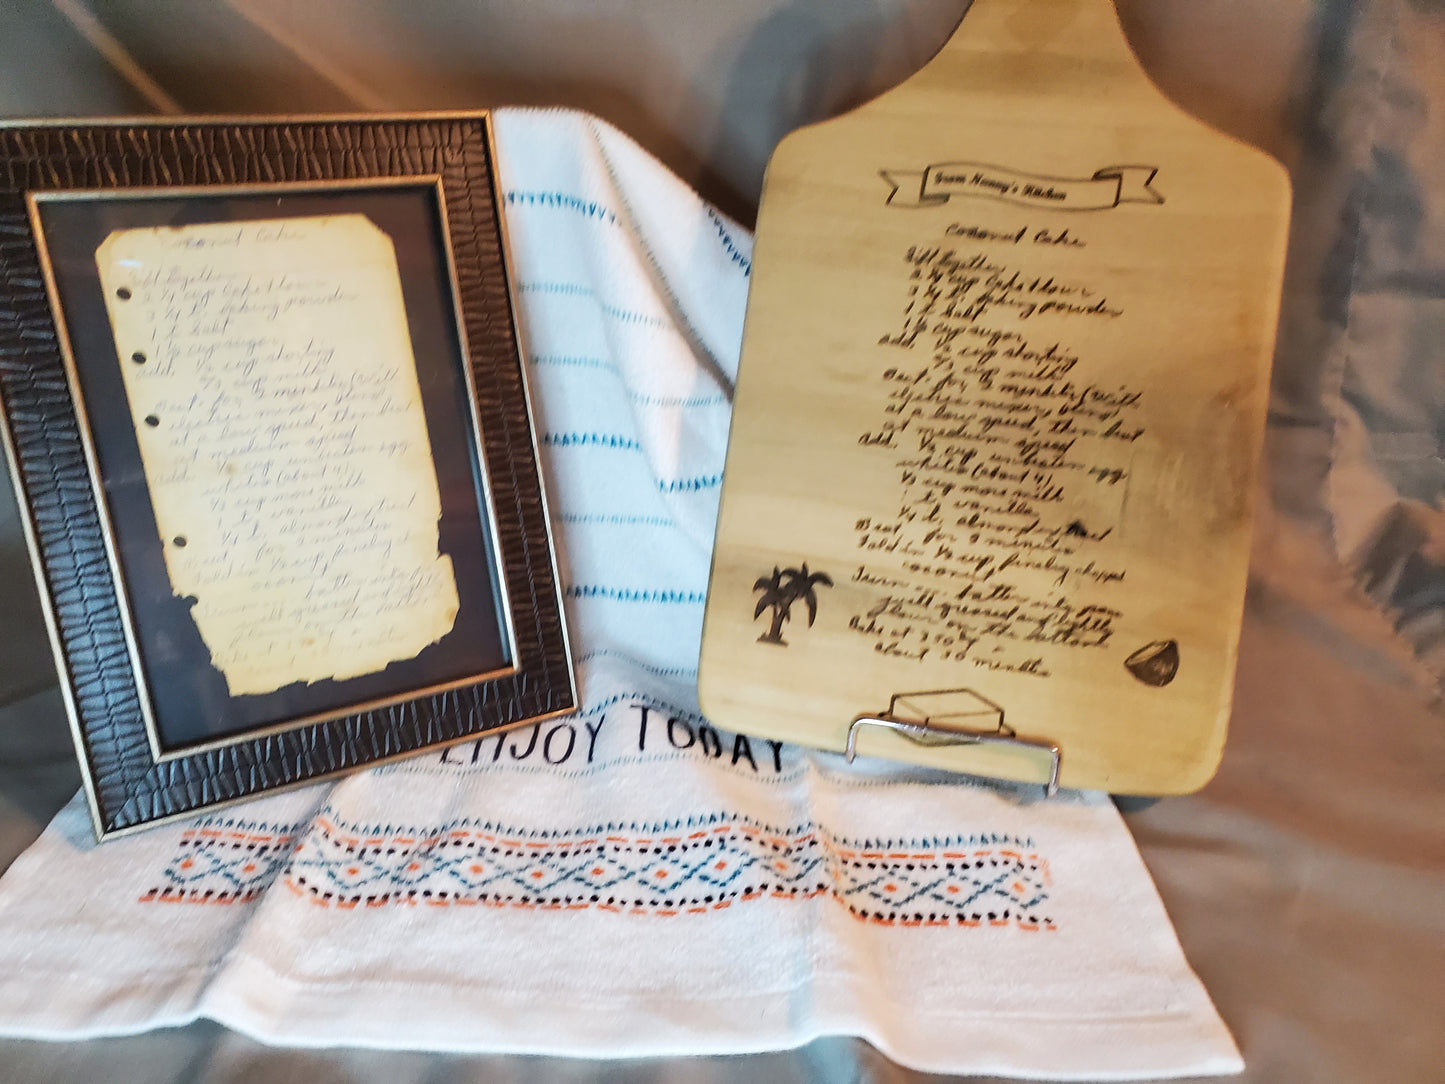 Coconut Cake
Sift together
2 1/4 cup Cake flour
3 1/4 t. baking powder
1 t. Salt
1 1/2 cup sugar
add. 1/2 cup shorting
2/3 cup milk
Beat for 2
at a low speed, then beat
at medium speed
add. 1/2 cup unbeaten egg
whites (about 4)
1/3 cup more milk
1 t. vanilla
1/4 t. almond extract
Beat for 2 minutes
Fold in cup, finely
coconut
Turn batter into
well greased and
flour on the bottom
Bake at
ENJOY TODAY
Gram Nanny's Kitchen
Coconut Cake
Sift together
2 1/4 cup Cake flour
3 1/4 t. baking powder
1 t. Salt
1 1/2 cup sugar
add. 1/2 cup shorting
2/3 cup milk
Beat for 2 (with
electric mixer, blend
at a low speed, then beat
at medium speed
add. 1/2 cup unbeaten egg
whites (about 4)
1/3 cup more milk
1 t. vanilla
1/4 t. almond extract
Beat for 2 minutes
Fold in cup, finely chopped
coconut
Turn batter into pans
well greased and lightly
flour on the bottom
Bake at 350°
about 30 minutes